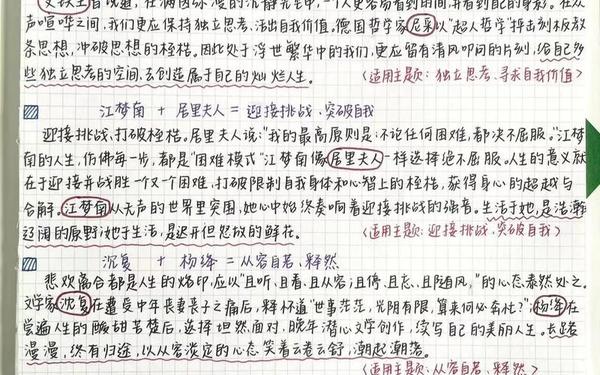 史铁生曾说道,在满园弥漫的沉静光芒中,一个人更容易看到时间,并看到自己的身影。在众
声喧哗之间,我们更应保持独立思考、活出自我价值。德国哲学家尼采以"超人哲学"抨击刻板教
条思想,冲破思想的桎梏。因此处于浮世繁华中的我们,更应留有清风叩问的片刻,给自己多
些独立思考的空间,去创造属于自己的灿烂人生。
(适用主题:独立思考、寻求自我价值)
江梦南 + 居里夫人 = 迎接挑战、突破自我
迎接挑战、打破桎梏。居里夫人说:"我的最高原则是:不论任何困难,都决不屈服。"江梦
南的人生,仿佛每一步,都是"困难模式"江梦南像居里夫人一样选择绝不屈服。人生的意义就
在于迎接并战胜一个又一个困难,打破限制自我身体和心智上的桎梏,获得身心的超越与
和解。江梦南从无声的世界里突围,她心中始终奏响着迎接挑战的强音。生活于她,是浩瀚
辽阔的原野;她于生活,是迟开但怒放的鲜花。
(适用主题:迎接挑战、突破自我)
沉复 + 杨绛 = 从容自若、释然
悲欢离合都是人生的烙印,应以"且听、且看、且从容;且停、且忘、且随风,"的心态泰然处之。
文学家沈复在遭受中年丧妻丧子之痛后,释怀道"世事茫茫,光阴有限,算来何必奔忙?";杨绛在
尝遍人生的酸甜苦楚后,选择坦然面对,晚年潜心文学创作,续写自己的美丽人生。长路
漫漫,终有归途,以从容淡定的心态笑看云卷云舒,潮起潮落。
(适用主题:从容自若、释然)